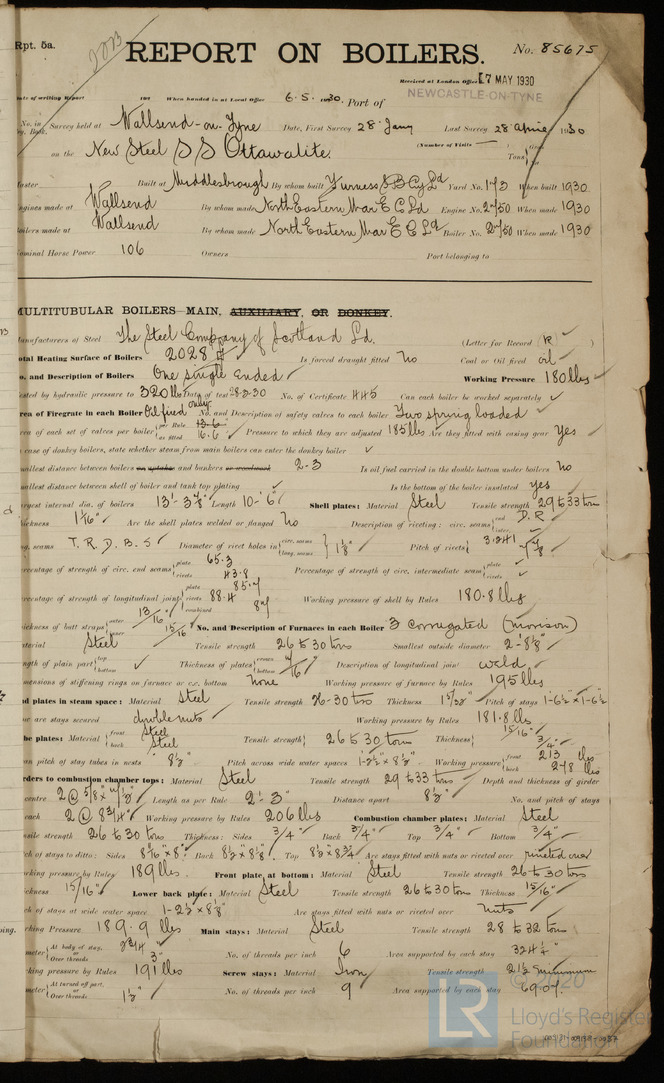 Rpt. 5a.
REPORT ON BOILERS.
No. 85675
Received at London Office 7 MAY 1930
NEWCASTLE-ON-TYNE
Date of writing Report 192 When handed in at Local Office 6.5.1930. Port of
No. in Survey held at Wallsend-on-Tyne Date, First Survey 28 Jany Last Survey 28 April 1930
Book. (Number of Visits — ) Gross
on the New Steel S S Ottawalite. Tons
Master Built at Middlesbrough By whom built Furness S B Coy Ld Yard No. 173 When built 1930
Engines made at Wallsend By whom made North Eastern Mar E C Ld Engine No. 2750 When made 1930
Boilers made at Wallsend By whom made North Eastern Mar E C Ld Boiler No. 2750 When made 1930
Nominal Horse Power 106 Owners Port belonging to
MULTITUBULAR BOILERS MAIN, AUXILIARY, OR DONKEY.
Manufacturers of Steel The Steel Company of Scotland Ld. (Letter for Record R )
Total Heating Surface of Boilers 2028 Is forced draught fitted No Coal or Oil fired oil
No. and Description of Boilers One single Ended Working Pressure 180 lbs
Tested by hydraulic pressure to 320 lbs Date of test 28.2.30 No. of Certificate 445 Can each boiler be worked separately
Area of Firegrate in each Boiler Oil fired only No. and Description of safety valves to each boiler Two spring loaded
Area of each set of valves per boiler per Rule 13.6 as fitted 16.6 Pressure to which they are adjusted 185 lbs Are they fitted with easing gear Yes
In case of donkey boilers, state whether steam from main boilers can enter the donkey boiler
Smallest distance between boilers or uptakes and bunkers or woodwork 2-3 Is oil fuel carried in the double bottom under boilers No
Smallest distance between shell of boiler and tank top plating Is the bottom of the boiler insulated yes
Largest internal dia. of boilers Length 10-6" Shell plates: Material Steel Tensile strength 29 to 33 tons
Thickness 1 1/16" Are the shell plates welded or flanged No Description of riveting: circ. seams end D.R inter.
long. seams T.R.D.B.S Diameter of rivet holes in circ. seams long. seams 1 1/8" Pitch of rivets 3.241 7 7/8
Percentage of strength of circ. end seams plate 65.3 rivets 43.8 Percentage of strength of circ. intermediate seam plate rivets
Percentage of strength of longitudinal joint plate 85.7 rivets 88.4 combined Working pressure of shell by Rules 180.8 lbs
Thickness of butt straps outer 13/16" inner 15/16" No. and Description of Furnaces in each Boiler 3 corrugated (morison)
Material Steel Tensile strength 26 to 30 tons Smallest outside diameter 2-8 5/8"
Length of plain part top bottom Thickness of plates crown bottom 7/16" Description of longitudinal joint weld
Dimensions of stiffening rings on furnace or c.c. bottom None Working pressure of furnace by Rules 195 lbs
End plates in steam space: Material Steel Tensile strength 26-30 tons Thickness 1 5/32" Pitch of stays 1-6½ × 1-6½
How are stays secured double nuts Working pressure by Rules 181.8 lbs
Tube plates: Material front Steel back Steel Tensile strength 26 to 30 tons Thickness 15/16" 3/4"
Mean pitch of stay tubes in nests 8½" Pitch across wide water spaces 1-2½" × 8½" Working pressure front 213 lbs back 278 lbs
Girders to combustion chamber tops: Material Steel Tensile strength 29 to 33 tons Depth and thickness of girder
at centre Length as per Rule 2'-3" Distance apart 8½" No. and pitch of stays
in each 2 @ 8 3/4" Working pressure by Rules 206 lbs Combustion chamber plates: Material Steel
Tensile strength 26 to 30 tons Thickness: Sides 3/4" Back 3/4" Top 3/4" Bottom 3/4"
Pitch of stays to ditto: Sides Back 8½ × 8⅛ Top 8½ × 8¾ Are stays fitted with nuts or riveted over riveted over
Working pressure by Rules 189 lbs. Front plate at bottom: Material Steel Tensile strength 26 to 30 tons
Thickness 15/16" Lower back plate: Material Steel Tensile strength 26 to 30 tons Thickness 15/16"
Pitch of stays at wide water space 1-2½ × 8⅛" Are stays fitted with nuts or riveted over nuts
Working Pressure 189.9 lbs Main stays: Material Steel Tensile strength 28 to 32 tons
Diameter At body of stay, 2 3/4" or Over threads 3" No. of threads per inch 6 Area supported by each stay 324¼"
Working pressure by Rules 191 lbs Screw stays: Material Iron Tensile strength 21½ minimum
Diameter At turned off part, or Over threads 1½" No. of threads per inch 9 Area supported by each stay 69.07
© 2020
LR
Lloyd's Register
Foundation